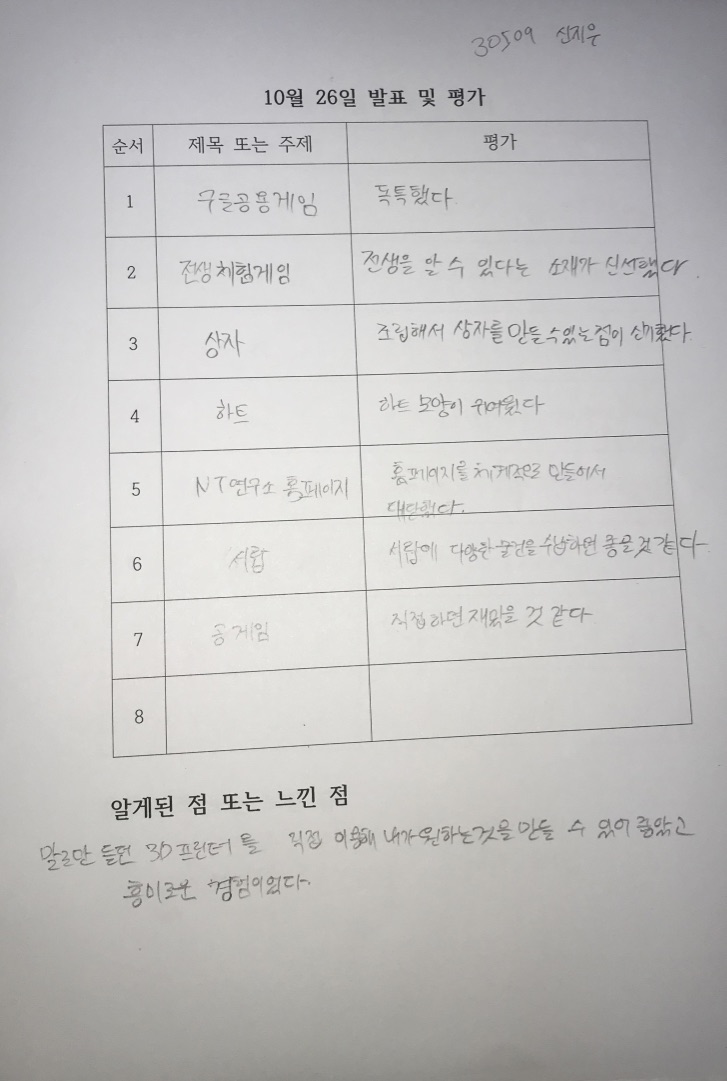 30509 신지우
10월 26일 발표 및 평가
순서 제목 또는 주제 평가
1 구글공룡게임 독특했다.
2 전생체험게임 전생을 알 수 있다는 소재가 신선했다.
3 상자 조립해서 상자를 만들 수 있는 점이 신기했다.
4 하트 하트 모양이 귀여웠다
5 NT연구소 홈페이지 홈페이지를 체계적으로 만들어서
대단했다.
6 서랍 서랍에 다양한 물건을 수납하면 좋을 것 같다
7 공게임 직접하면 재밌을 것 같다
8
알게된 점 또는 느낀 점
말로만 듣던 3D프린터를 직접 이용해 내가 원하는것을 만들 수 있어 좋았고
흥미로운 경험이었다.